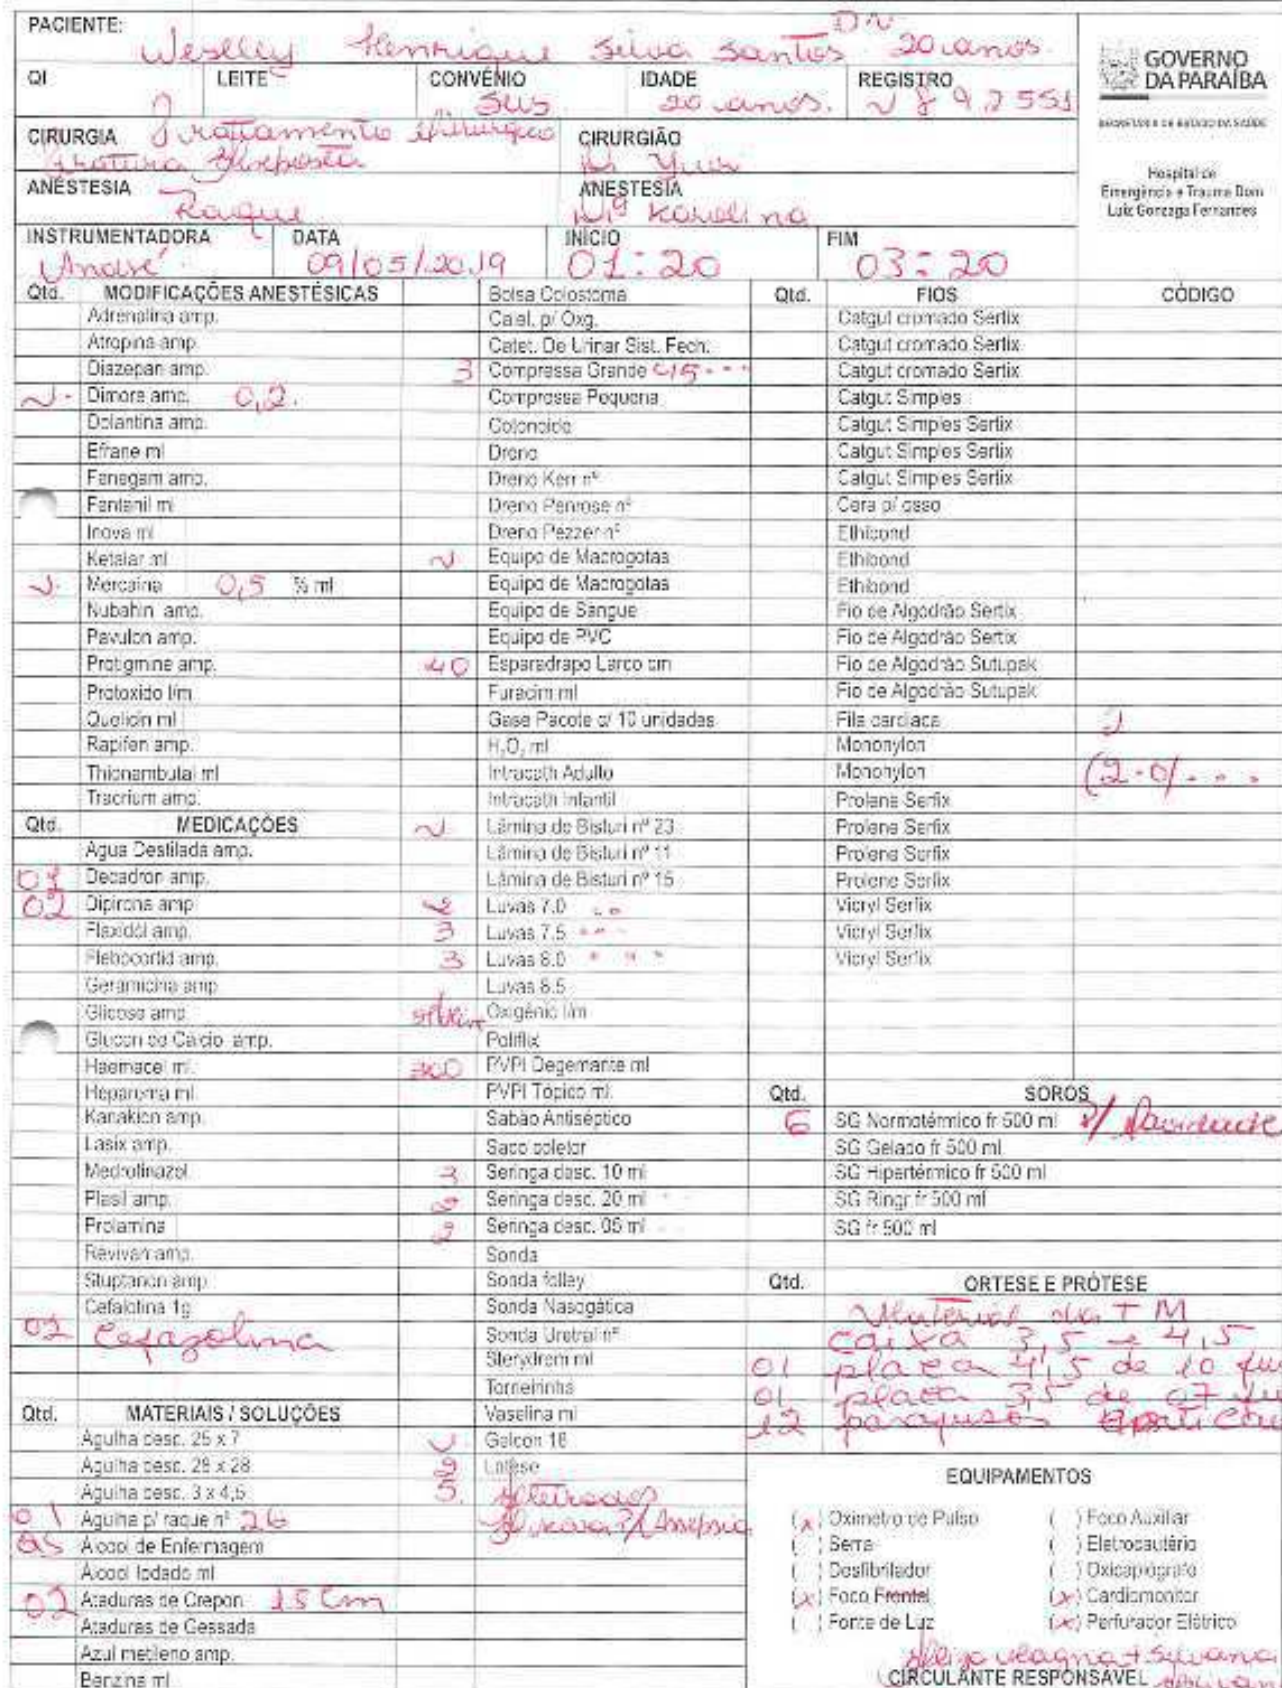 PACIENTE: Weslley Henrique Silva Santos DN 20 anos
QI LEITE CONVÊNIO SUS IDADE 20 anos. REGISTRO
CIRURGIA Tratamento Cirurgico
Fratura Exposta
CIRURGIÃO Dr Yuri
ANESTESIA Raque
ANESTESIA Drª Karolina
INSTRUMENTADORA André DATA 09/05/2019 INÍCIO 01:20 FIM 03:20
GOVERNO
DA PARAÍBA
SECRETARIA DE ESTADO DA SAÚDE
Hospital de
Emergência e Trauma Dom
Luiz Gonzaga Fernandes
Qtd. MODIFICAÇÕES ANESTÉSICAS
Adrenalina amp.
Atropina amp.
Diazepan amp.
Dimora amp. 0,2.
Dolantina amp.
Efrane ml
Fenegam amp.
Fentanil ml
Inova ml
Ketalar ml
Mercaina 0,5 % ml
Nubahin amp.
Pavulon amp.
Protigmine amp.
Protoxido l/m
Quelicin ml
Rapifen amp.
Thionambutal ml
Tracrium amp.
Qtd. MEDICAÇÕES
Agua Destilada amp.
01 Decadron amp.
02 Dipirona amp
Flaxidol amp.
Flebocortid amp.
Geramicina amp
Glicose amp
Glucon de Calcio amp.
Haemacel ml.
Heparema ml
Kanakion amp.
Lasix amp.
Medrotinazol
Plasil amp.
Prolamina
Revivan amp.
Stuptanon amp
Cefalotina 1g
02 Cefazolina
Qtd. MATERIAIS / SOLUÇÕES
Agulha desc. 25 x 7
Agulha desc. 28 x 28
Agulha desc. 3 x 4,5
01 Agulha p/ raque nº 26
05 Álcool de Enfermagem
Álcool Iodado ml
02 Ataduras de Crepon 15 Cm
Ataduras de Gessada
Azul metileno amp.
Benzina ml
Bolsa Colostoma
Catet. p/ Oxg.
Catet. De Urinar Sist. Fech.
3 Compressa Grande C/15
Compressa Pequena
Cotonoide
Dreno
Dreno Kerr nº
Dreno Penrose nº
Dreno Pezzer nº
Equipo de Macrogotas
Equipo de Macrogotas
Equipo de Sangue
Equipo de PVC
40 Esparadrapo Larco cm
Furacim ml
Gase Pacote c/ 10 unidades
H₂O₂ ml
Intracath Adulto
Intracath Infantil
Lâmina de Bisturi nº 23
Lâmina de Bisturi nº 11
Lâmina de Bisturi nº 15
2 Luvas 7.0
3 Luvas 7.5
3 Luvas 8.0
Luvas 8.5
Oxigênio l/m
Poliflix
300 PVPI Degemante ml
PVPI Tópico ml.
Sabão Antiséptico
Saco coletor
3 Seringa desc. 10 ml
2 Seringa desc. 20 ml
2 Seringa desc. 05 ml
Sonda
Sonda folley
Sonda Nasogática
Sonda Uretral nº
Sterydrem ml
Torneirinha
Vaselina ml
Gelcon 18
2 Latese
5. Eletrodos
Qtd. FIOS CÓDIGO
Catgut cromado Serfix
Catgut cromado Serfix
Catgut cromado Sertix
Catgut Simples
Catgut Simples Serfix
Catgut Simples Serfix
Catgut Simples Serfix
Cera p/ osso
Ethibond
Ethibond
Ethibond
Fio de Algodrão Sertix
Fio de Algodrão Sertix
Fio de Algodrão Sutupak
Fio de Algodrão Sutupak
Fila cardiaca
Mononylon
Mononylon (2-0)
Prolene Serfix
Prolene Serfix
Prolene Serfix
Prolene Serfix
Vicryl Serfix
Vicryl Serfix
Vicryl Serfix
Qtd. SOROS
6 SG Normotérmico fr 500 ml p/
SG Gelado fr 500 ml
SG Hipertérmico fr 500 ml
SG Ringr fr 500 ml
SG fr 500 ml
Qtd. ORTESE E PRÓTESE
Material da TM
caixa 3,5 e 4,5
01 placa 4,5 de 10 fu
01 placa 3,5 de 07 fu
12 parafusos
EQUIPAMENTOS
(x) Oximetro de Pulso ( ) Foco Auxiliar
( ) Serra ( ) Eletrocautério
( ) Desfibrilador ( ) Oxicapiógrafo
(x) Foco Frontal (x) Cardiomonitor
( ) Fonte de Luz (x) Perfurador Elétrico
CIRCULANTE RESPONSÁVEL